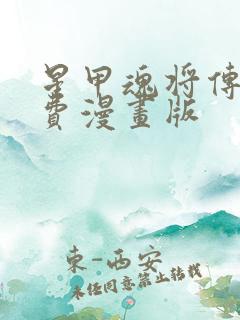 星甲魂将傳
費漫畫版
東-西安
未经同意禁止转载